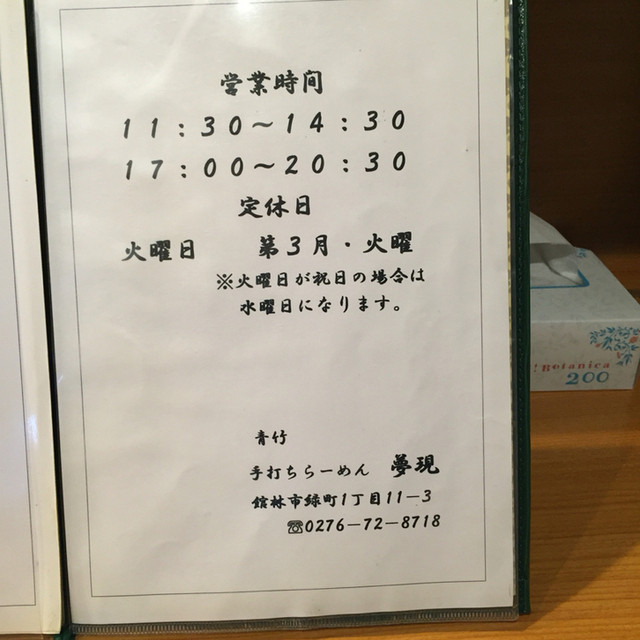 営業時间
11：30～14：30
17：00～20：30
定休日
火曜日　第3月・火曜
※火曜日が祝日の場合は
水曜日になります。
青竹
手打ちらーめん　夢現
館林市緑町1丁目11－3
☎0276－72－8718
! Botanica
200